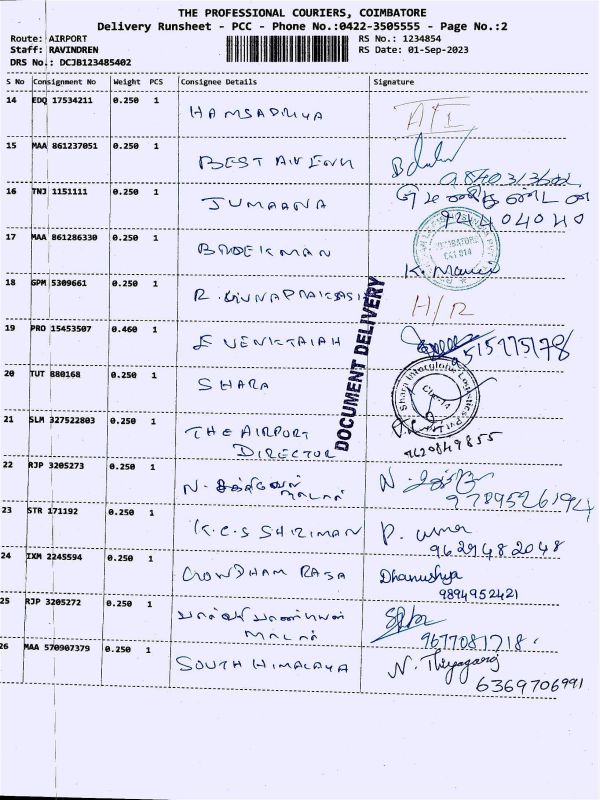 THE PROFESSIONAL COURIERS, COIMBATORE
Delivery Runsheet - PCC - Phone No.:0422-3505555 - Page No.:2
Route: AIRPORT RS No.: 1234854
Staff: RAVINDREN RS Date: 01-Sep-2023
DRS No.: DCJB123485402
S No Consignment No Weight PCS Consignee Details Signature
14 EDQ 17534211 0.250 1 HAMSADRIYA
15 MAA 861237051 0.250 1 BEST
16 TNJ 1151111 0.250 1 JUMAANA
924404040
17 MAA 861286330 0.250 1
COIMBATORE
641 014
18 GPM 5309661 0.250 1 R. GUNAPRAKASH H/R
19 PRO 15453507 0.460 1 VENKTAIAH
DOCUMENT DELIVERY
20 TUT 880168 0.250 1 SHARA
Shara Interglobe Logistics Pvt Ltd
21 SLM 327522803 0.250 1 THE AIRPORT
DIRECTOR
9620849855
22 RJP 3205273 0.250 1 N.
MALAR 9789526194
23 STR 171192 0.250 1 K.C.S SHRIMAN P. uma
9629482048
24 IXM 2245594 0.250 1 GOWDHAM RAJA Dhanushya
9894952421
25 RJP 3205272 0.250 1
MALAR 9677081718
26 MAA 570907379 0.250 1 SOUTH HIMALAYA N. Thiyagaraj
6369706991